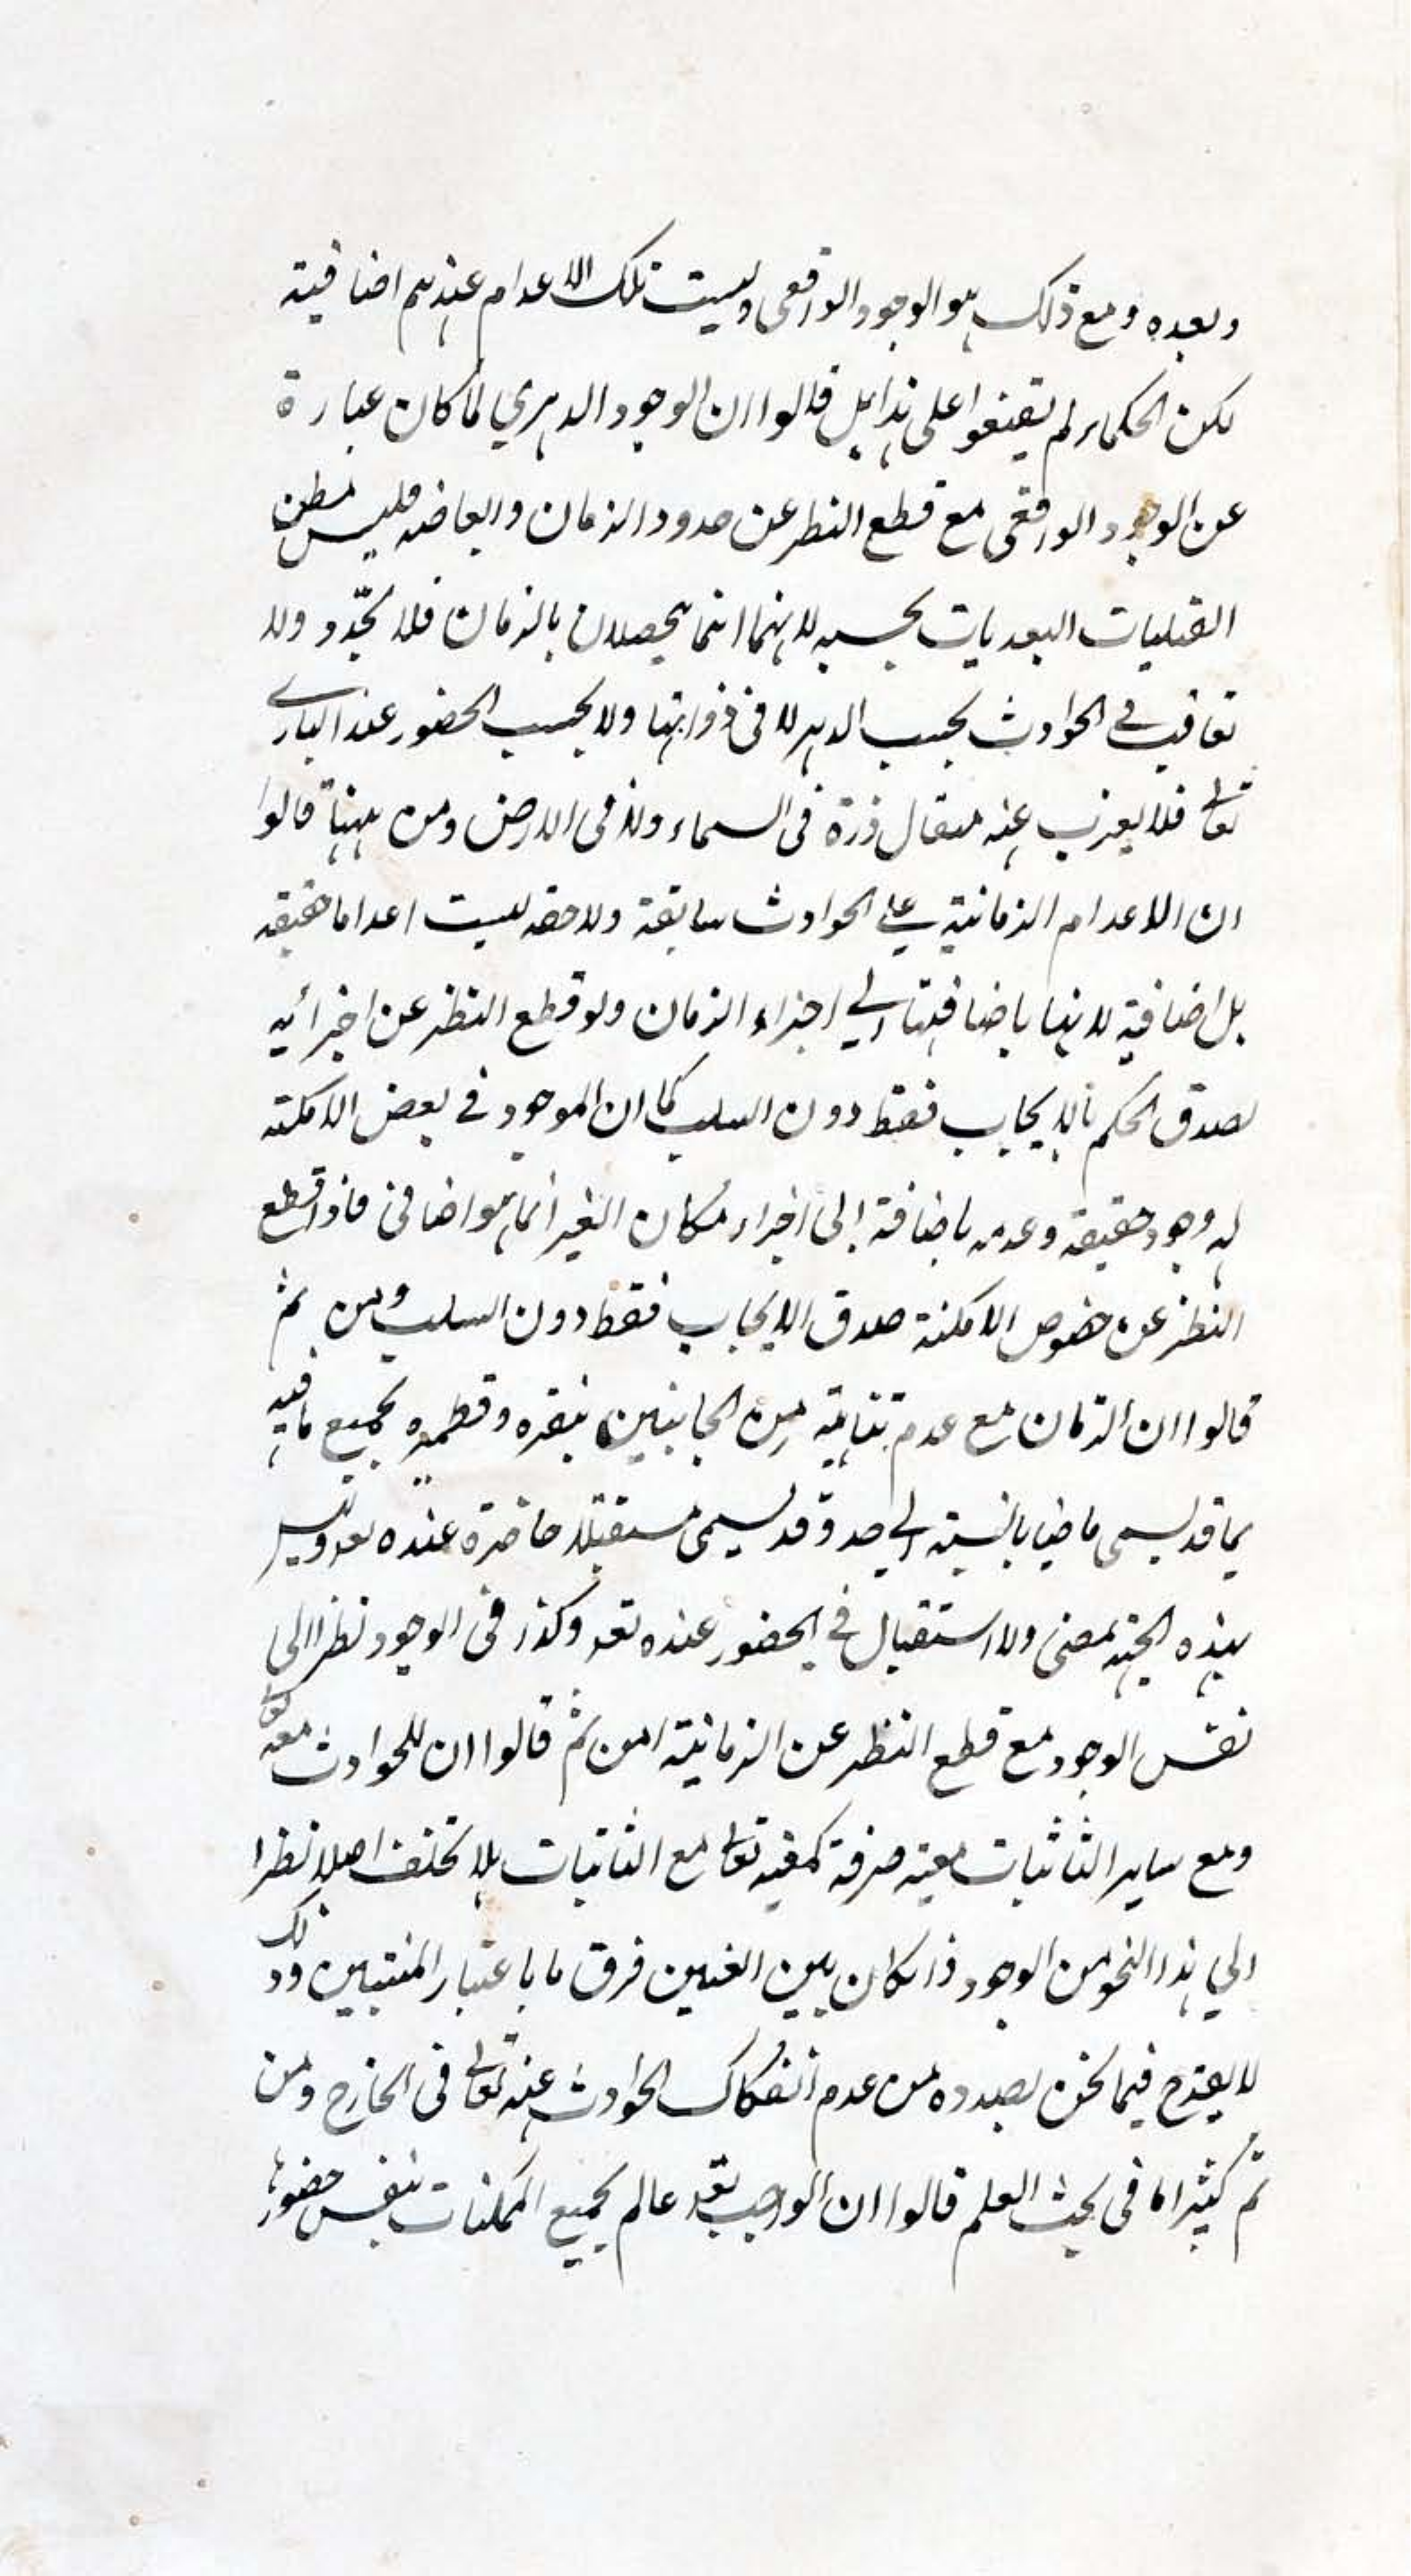 وبعده ومع ذلك هو الوجود الواقعى وليست تلك الاعدام عندهم اضافية
لكن الحكماء لم يقنعوا على هذا بل قالوا ان الوجود الدهري لما كان عبارة
عن الوجود الواقعى مع قطع النظر عن حدود الزمان وابعاضه فليس
القبليات البعديات بحسبه لانهما انما يحصلان بالزمان فلا تجدد ولا
تعاقب في الحوادث بحسب الدهر لا فى ذواتها ولا بحسب الحضور عند البارى
تعالى فلا يعزب عنه مثقال ذرة فى السماء ولا فى الارض ومن ههنا قالوا
ان الاعدام الزمانية على الحوادث سابقة ولاحقه ليست اعداما حقيقه
بل اضافية لانها باضافتها الي اجزاء الزمان ولو قطع النظر عن اجزائه
لصدق الحكم بالايجاب فقط دون السلب كما ان الموجود في بعض الامكنة
له وجود حقيقة وعدمه باضافة إلى اجزاء مكان الغير انما هو اضافى فاذا قطع
النظر عن خصوص الامكنة صدق الايجاب فقط دون السلب ومن ثم
قالوا ان الزمان مع عدم تناهيه من الجانبين بنقيره وقطميره بجميع ما فيه
بما قد يسمى ماضيا بالنسبة الي حد وقد يسمى مستقبلا حاضرة عنده تعد وليس
بهذه الجهة مضى ولا استقبال في الحضور عنده تعد وكذا فى الوجود نظرا الى
نفس الوجود مع قطع النظر عن الزمانية من ثم قالوا ان للحوادث معه تعالى
ومع ساير الثابتات معية صرفة كمعيته تعالى مع الثابتات بلا تخلف اصلا نظرا
الي هذا النحو من الوجود كان بين فرق ما باعتبار المنتسبين وذلك
لا يقدح فيما نحن بصدده من عدم انفكاك الحوادث عنه تعالى فى الخارج ومن
ثم كثيرا ما فى بحث العلم قالوا ان الواجب تعد عالم بجميع الممكنات بنفس حضورها